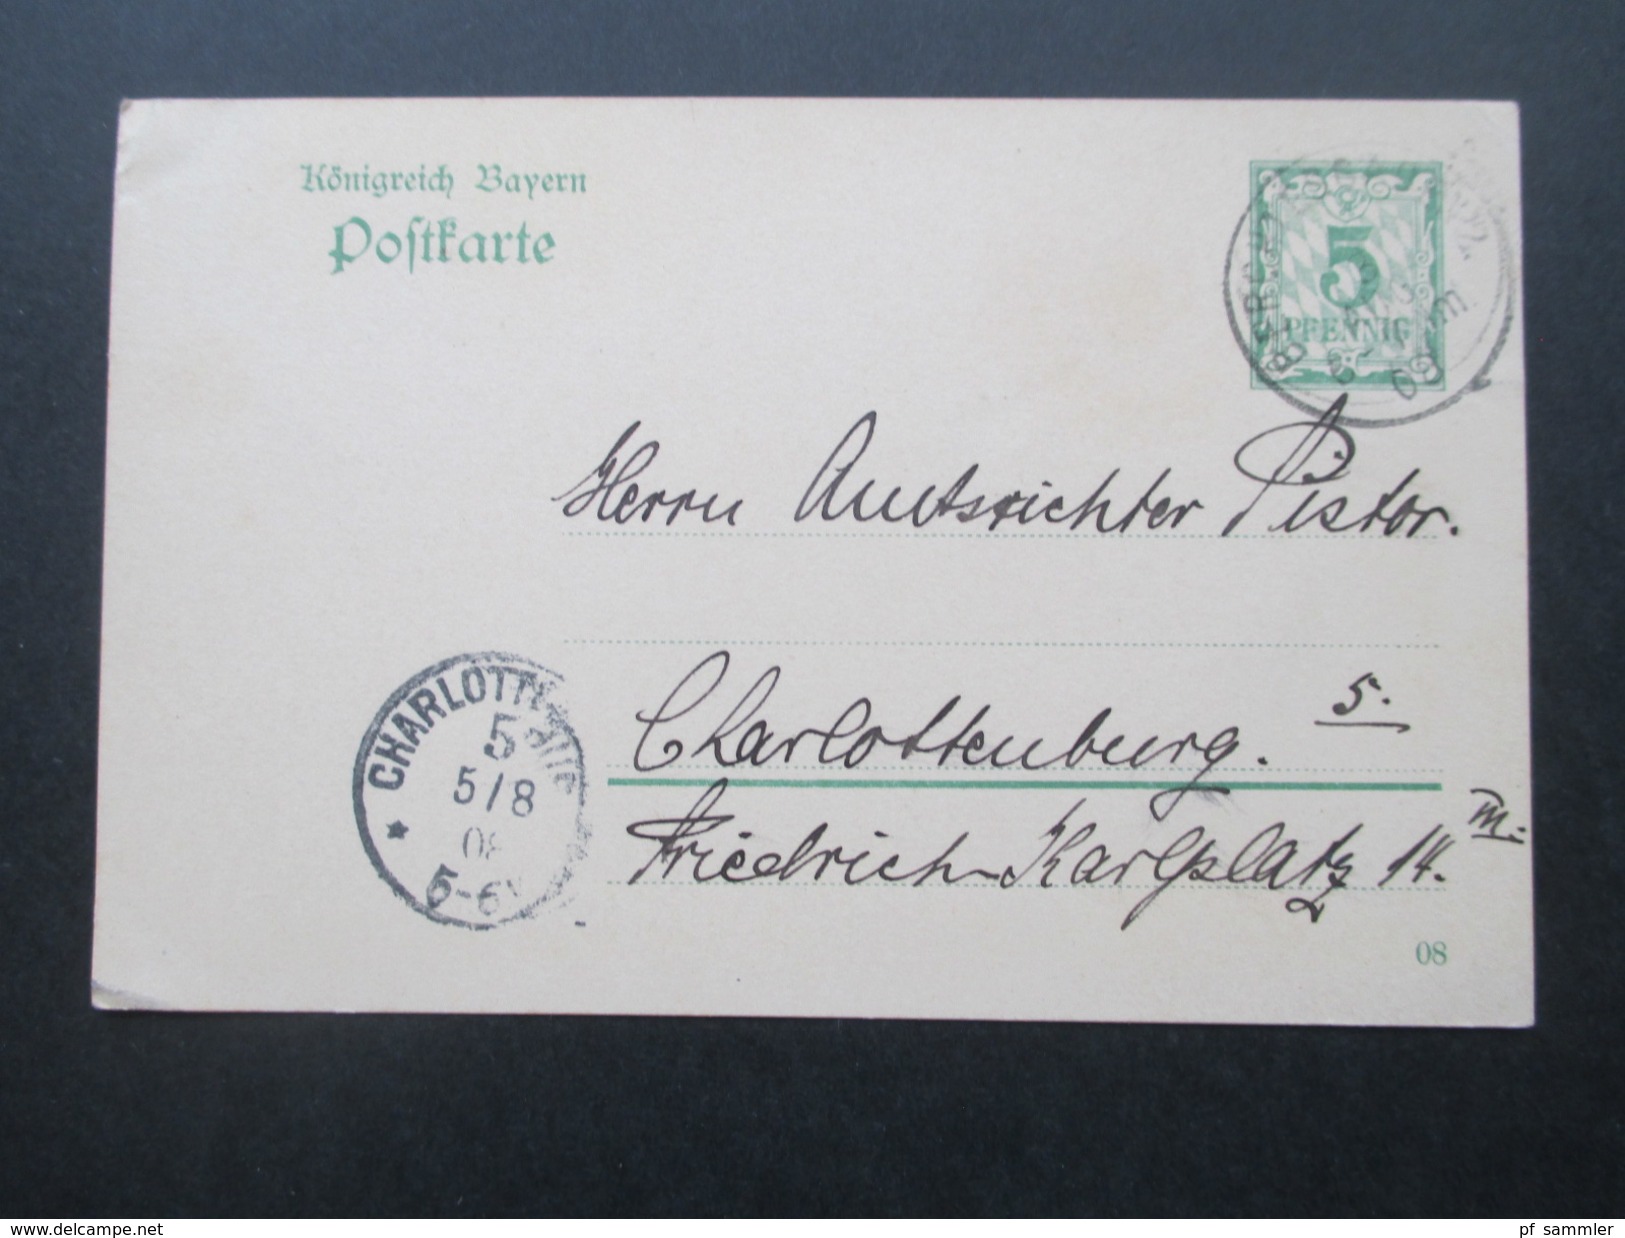 Königreich Bayern
Postkarte
5
PFENNIG
08
Herrn Amtsrichter Pistor.
Charlottenburg. 5.
Friedrich-Karlplatz 14. III.
CHARLOTTEN
5
5/8
08
5-6
08
www.delcampe.net
pf_sammler